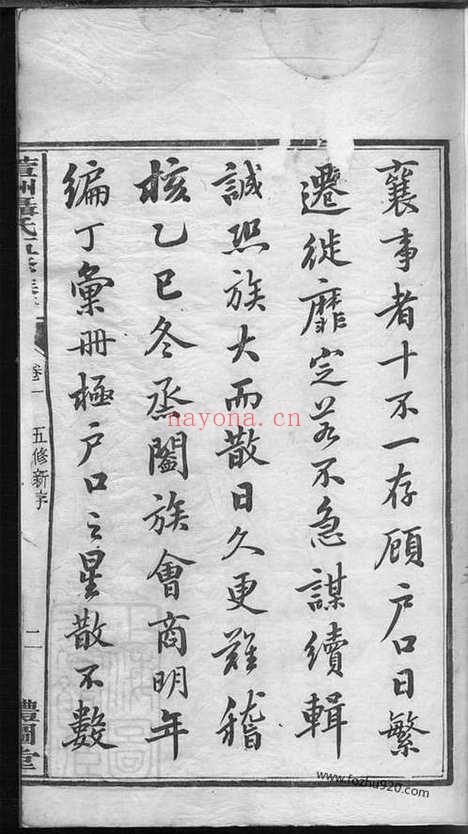 襄事者十不一存顧户口日繁
遷徙靡定若不急謀續輯
誠恐族大而散日久更難稽
核乙巳冬烝闔族會商明年
編丁彙冊極户口之星散不數
卷一
五修新序
二
禮閣堂
nayona.cn
www.fozhu920.com